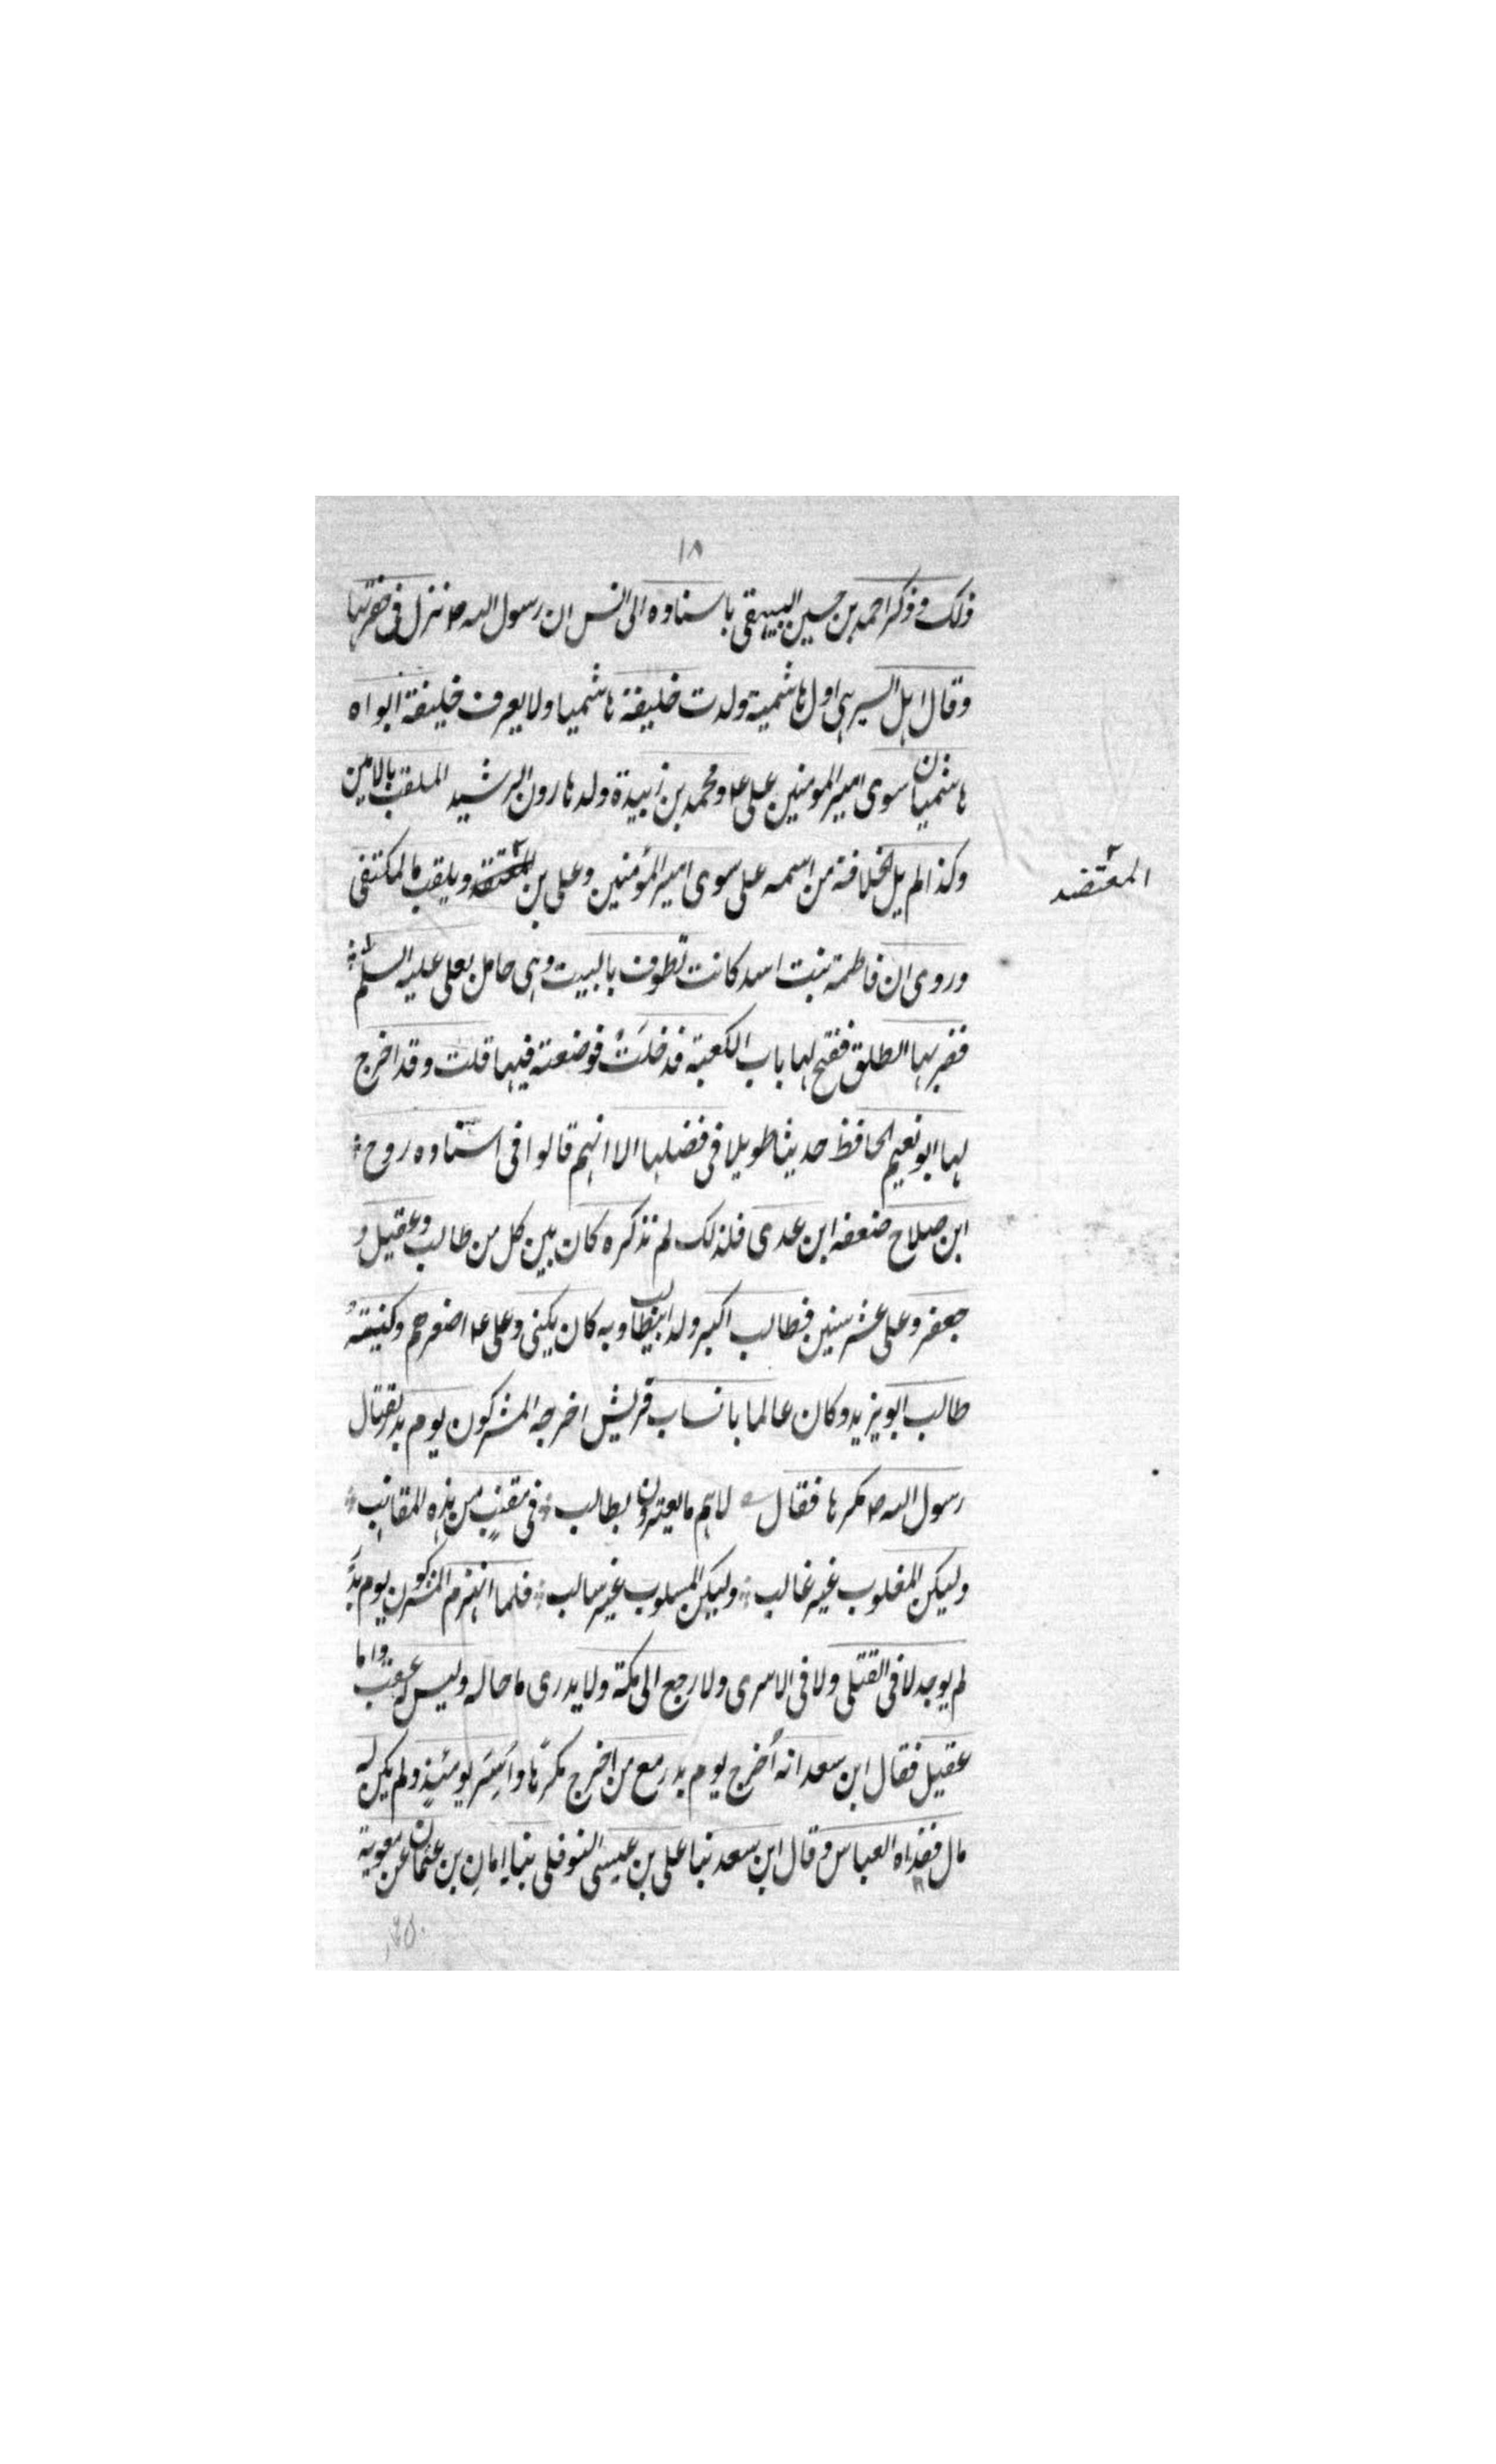 ١٨
ذلك وذكر احمد بن حسين البيهقي باسناده الى انس ان رسول الله ص نزل في حفرتها
وقال اهل السير هي اول هاشمية ولدت خليفة هاشميا ولا يعرف خليفة ابواه
هاشميان سوى امير المومنين على ع ومحمد بن زبيدة ولد هارون الرشيد الملقب بالامين
وكذا لم يل الخلافة من اسمه على سوى امير المؤمنين وعلى بن ويلقب بالمكتفى
المعتضد
وروى ان فاطمة بنت اسد كانت تطوف بالبيت وهى حامل بعلى عليه السلم
فضربها الطلق ففتح لها باب الكعبة فدخلت فوضعته فيها قلت وقد اخرج
لها ابو نعيم الحافظ حديثا طويلا فى فضلها الا انهم قالوا فى اسناده روح
ابن صلاح ضعفه ابن عدى فلذلك لم نذكره كان بين كل من طالب وعقيل و
جعفر وعلى عشر سنين فطالب اكبر ولد ابيطالب وبه كان يكنى وعلى ع اصغرهم وكنيته
طالب ابو يزيد وكان عالما بانساب قريش اخرجه المشركون يوم بدر لقتال
رسول الله ص مكرها فقال لاهم ما يعتزون بطالب فى مقنب من هذه المقانب
وليكن المغلوب غير غالب وليكن المسلوب غير سالب فلما انهزم المشركون يوم بدر
لم يوجد لا فى القتلى ولا فى الاسرى ولا رجع الى مكة ولا يدرى ما حاله وليس له عقب واما
عقيل فقال ابن سعد انه أخرج يوم بدر مع من اخرج مكرها وأسر يومئذ ولم يكن له
مال ففداه العباس وقال ابن سعد نبا على بن عيسى النوفلى نبا ابان بن عثمان عن معوية